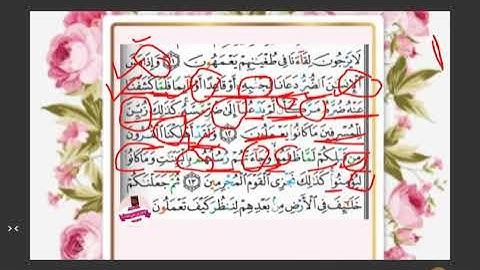 لَا يَرْجُونَ لِقَآءَنَا فِي طُغْيَٰنِهِمْ يَعْمَهُونَ ١١ وَإِذَا مَسَّ
ٱلْإِنسَٰنَ ٱلضُّرُّ دَعَانَا لِجَنۢبِهِۦٓ أَوْ قَاعِدًا أَوْ قَآئِمًا فَلَمَّا كَشَفْنَا
عَنْهُ ضُرَّهُۥ مَرَّ كَأَن لَّمْ يَدْعُنَآ إِلَىٰ ضُرٍّ مَّسَّهُۥ كَذَٰلِكَ زُيِّنَ
لِلْمُسْرِفِينَ مَا كَانُوا۟ يَعْمَلُونَ ١٢ وَلَقَدْ أَهْلَكْنَا ٱلْقُرُونَ
مِن قَبْلِكُمْ لَمَّا ظَلَمُوا۟ وَجَآءَتْهُمْ رُسُلُهُم بِٱلْبَيِّنَٰتِ وَمَا كَانُوا۟
لِيُؤْمِنُوا۟ كَذَٰلِكَ نَجْزِي ٱلْقَوْمَ ٱلْمُجْرِمِينَ ١٣ ثُمَّ جَعَلْنَٰكُمْ
خَلَٰٓئِفَ فِي ٱلْأَرْضِ مِنۢ بَعْدِهِمْ لِنَنظُرَ كَيْفَ تَعْمَلُونَ